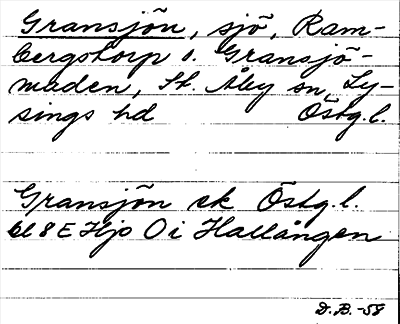 Gransjön, sjö, Ram-
bergstorp o. Gransjö-
maden, St. Åby sn, Ly-
sings hd Östg.l.
Gransjön ek Östg.l.
bl 8 E Hjo O i Hallången
D.B. -58